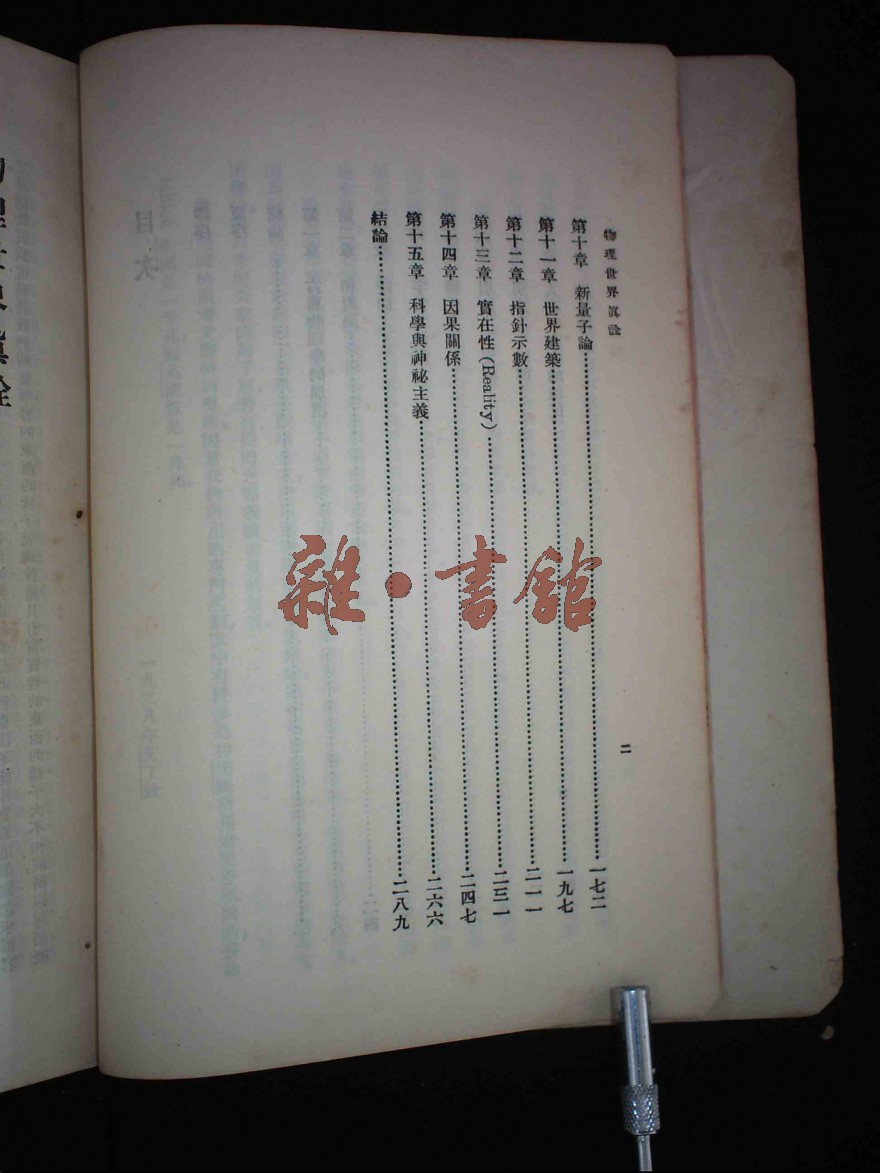 物理世界眞詮
第十章　新量子論⋯⋯⋯⋯⋯⋯⋯⋯一七二
第十一章　世界建築⋯⋯⋯⋯⋯⋯⋯⋯一九七
第十二章　指針示數⋯⋯⋯⋯⋯⋯⋯⋯二一一
第十三章　實在性(Reality)⋯⋯⋯⋯⋯⋯⋯⋯二三一
第十四章　因果關係⋯⋯⋯⋯⋯⋯⋯⋯二四七
第十五章　科學與神祕主義⋯⋯⋯⋯⋯⋯⋯⋯二六六
結論⋯⋯⋯⋯⋯⋯⋯⋯二八九
二
雜·書館